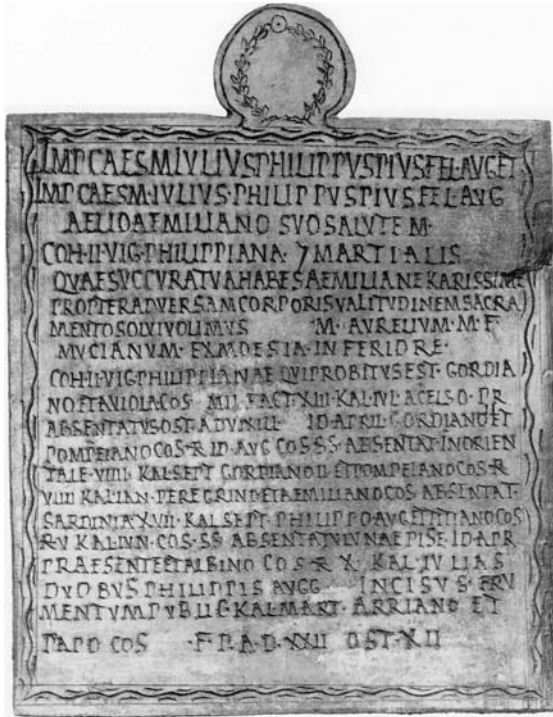 IMP CAES M IVLIVS PHILIPPVS PIVS FEL AVG ET
IMP CAES M·IVLIVS·PHILIPPVS PIVS FEL AVG
AELIO AEMILIANO SVO SALVTEM·
COH·II·VIG·PHILIPPIANA 7 MARTIALIS
QVAE SVC CVRA TVA HABES AEMILIANE KARISSIME
PROPTER ADVERSAM CORPORIS VALITVDINEM SACRA
MENTO SOLVI VOLIMVS M· AVRELIVM·M·F·
MVCIANVM· EX MOESIA·INFERIORE·
COH·II·VIG·PHILIPPIANAE QVI PROBITVS EST· GORDIA
NO ET AVIOLA COS· MIL· FACT·XIII·KAL·IVL A CELSO·PR
ABSENTATVS OST· A DVXIIII ID·APRIL·GORDIANO ET
POMPEIANO COS·R ID·AVG COS SS·ABSENTAT·IN ORIEN
TALE·VIIII·KAL·SEPT GORDIANO II·ET POMPEIANO COS·R
VIIII KAL·IAN·PEREGRINO ET AEMILIANO COS ABSENTAT·
SARDINIA XVII·KAL·SEPT·PHILIPPO·AVG ET TITIANO COS
R V KAL·IVN·COS·SS ABSENTATV LVNAE PISE·ID·APR
PRAESENTE ET ALBINO COS·R X KAL·IVLIAS
DVOBVS PHILIPPIS AVGG INCISVS·FRV
MENTVM PVBLIG KAL·MART·ARRIANO ET
PAPO COS ·F P·A·D·XXII OST·XII